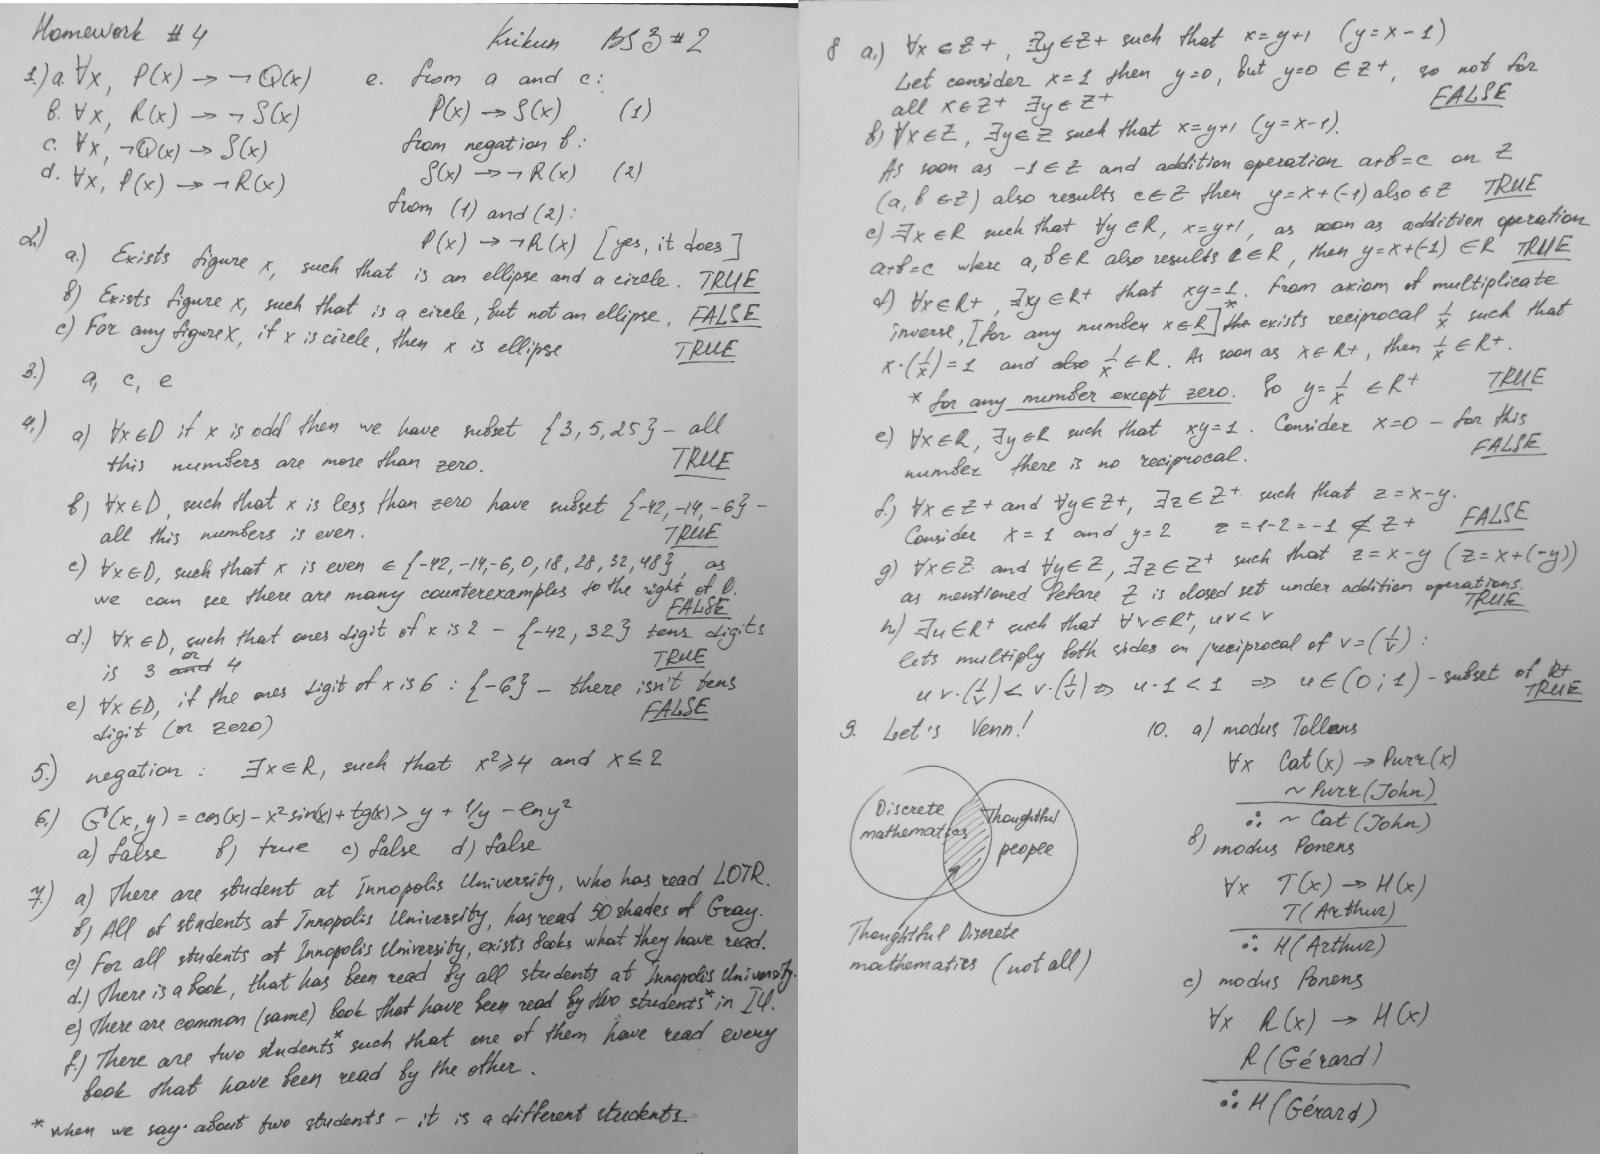 Homework #4
Krikun BS3 #2
1.) a. ∀x, P(x) → ¬ Q(x)
b. ∀x, R(x) → ¬ S(x)
c. ∀x, ¬Q(x) → S(x)
d. ∀x, P(x) → ¬ R(x)
e. from a and c:
P(x) → S(x) (1)
from negation b:
S(x) → ¬ R(x) (2)
from (1) and (2):
P(x) → ¬ R(x) [yes, it does]
2.)
a.) Exists figure x, such that is an ellipse and a circle. TRUE
b) Exists figure x, such that is a circle, but not an ellipse. FALSE
c) For any figure x, if x is circle, then x is ellipse TRUE
3.) a, c, e
4.) a) ∀x∈D if x is odd then we have subset {3, 5, 25} – all
this numbers are more than zero. TRUE
b) ∀x∈D, such that x is less than zero have subset {-42, -14, -6} –
all this numbers is even. TRUE
c) ∀x∈D, such that x is even ∈ {-42, -14, -6, 0, 18, 28, 32, 48}, as
we can see there are many counterexamples to the right of 0.
FALSE
d.) ∀x∈D, such that ones digit of x is 2 – {-42, 32} tens digits
is 3 or 4 TRUE
e) ∀x∈D, if the ones digit of x is 6 : {-6} – there isn't tens
digit (or zero) FALSE
5.) negation : ∃x∈R, such that x²≥4 and x≤2
6.) G(x,y) = cos(x) – x² sin(x) + tg(x) > y + 1/y – lny²
a) false b) true c) false d) false
7.) a) There are student at Innopolis University, who has read LOTR.
b) All of students at Innopolis University, has read 50 shades of Gray.
c) For all students at Innopolis University, exists books what they have read.
d.) There is a book, that has been read by all students at Innopolis University.
e) There are common (same) book that have been read by two students* in IU.
f.) There are two students* such that one of them have read every
book that have been read by the other.
* when we say about two students – it is a different students
8 a.) ∀x ∈ Z+, ∃y∈Z+ such that x=y+1 (y=x-1)
Let consider x=1 then y=0, but y=0 ∈ Z+, so not for
all x∈Z+ ∃y∈Z+ FALSE
b) ∀x∈Z, ∃y∈Z such that x=y+1 (y=x-1).
As soon as -1∈Z and addition operation a+b=c on Z
(a, b ∈Z) also results c∈Z then y=x+(-1) also ∈Z TRUE
c) ∃x∈R such that ∀y∈R, x=y+1, as soon as addition operation
a+b=c where a, b∈R also results c∈R, then y=x+(-1) ∈R TRUE
d) ∀x∈R+, ∃xy∈R+ that xy=1. From axiom of multiplicate
inverse, [for any number x∈R]* the exists reciprocal 1/x such that
x·(1/x)=1 and also 1/x ∈R. As soon as x∈R+, then 1/x ∈R+.
* for any number except zero. So y= 1/x ∈R+ TRUE
e) ∀x∈R, ∃y∈R such that xy=1. Consider x=0 – for this
number there is no reciprocal. FALSE
f.) ∀x∈Z+ and ∀y∈Z+, ∃z∈Z+ such that z=x-y.
Consider x=1 and y=2 z=1-2=-1 ∉ Z+ FALSE
g) ∀x∈Z and ∀y∈Z, ∃z∈Z+ such that z=x-y (z=x+(-y))
as mentioned before Z is closed set under addition operations.
TRUE
h) ∃u∈R+ such that ∀v∈R+, uv<v
lets multiply both sides on reciprocal of v=(1/v) :
uv·(1/v)<v·(1/v) ⇒ u·1<1 ⇒ u∈(0;1) - subset of R+
TRUE
9. Let's Venn!
Discrete
mathematics
Thoughtful
people
Thoughtful Discrete
mathematics (not all)
10. a) modus Tollens
∀x Cat(x) → Purr(x)
~ Purr(John)
∴ ~ Cat(John)
b) modus Ponens
∀x T(x) → H(x)
T(Arthur)
∴ H(Arthur)
c) modus Ponens
∀x R(x) → H(x)
R(Gérard)
∴ H(Gérard)